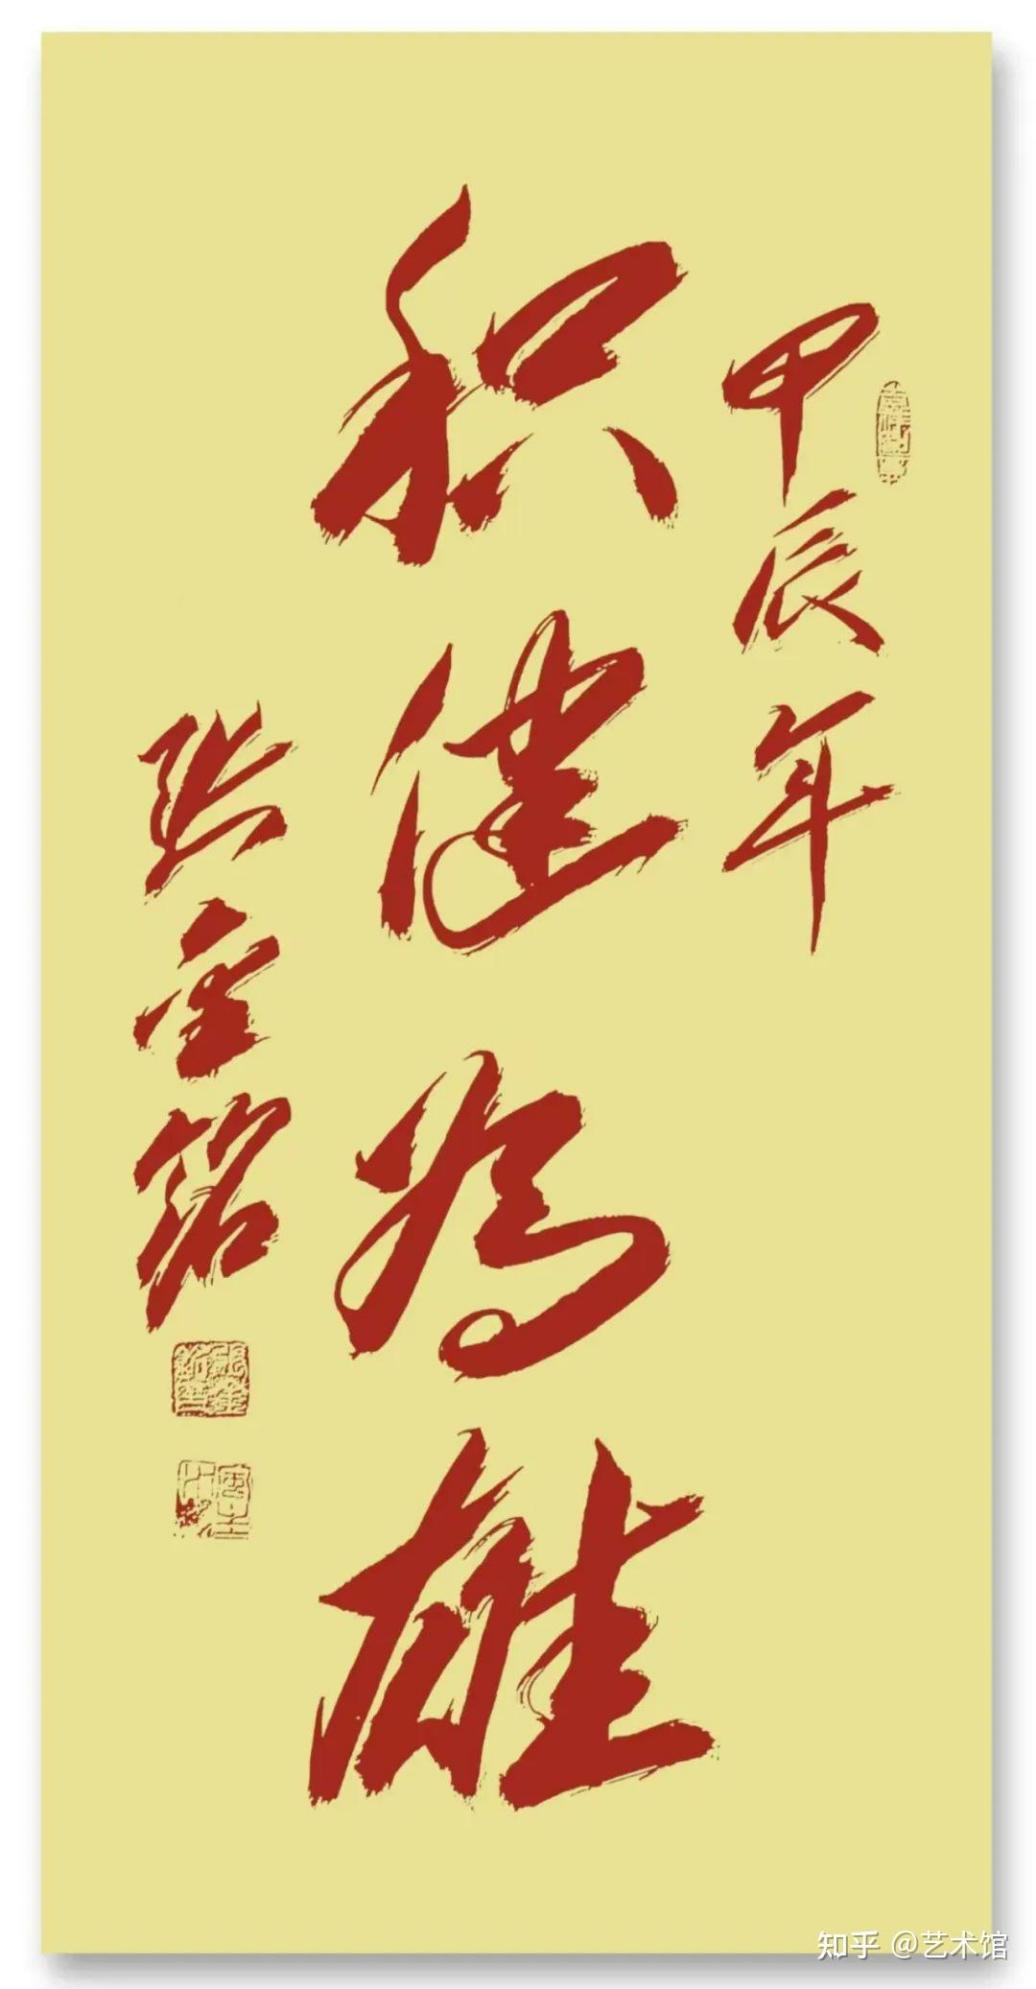 甲辰年
积健为雄
张金铭
知乎 @艺术馆